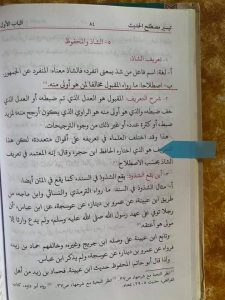 تيسير مصطلح الحديث ٨٤ الباب الأول
٥- الشاذ والمحفوظ
١- تعريف الشاذ:
أ- لغة: اسم فاعل من شذ بمعنى انفرد؛ فالشاذ معناه: المنفرد عن الجمهور.
ب- اصطلاحا: ما رواه المقبول مخالفا لمن هو أولى منه.
٢- شرح التعريف: المقبول هو العدل الذي تم ضبطه، أو العدل الذي
خف ضبطه، والذي هو أولى منه هو الراوي الذي يكون أرجح منه؛ لمزيد
ضبط، أو كثرة عدد، أو غير ذلك من وجوه الترجيحات.
هذا، وقد اختلف العلماء في تعريفه على أقوال متعددة، لكن هذا
هو الذي اختاره الحافظ ابن حجر، وقال: إنه المعتمد في تعريف
الشاذ بحسب الاصطلاح
٣- أين يقع الشذوذ؟ يقع الشذوذ في السند، كما يقع في المتن أيضا.
أ- مثال الشذوذ في السند: ما رواه الترمذي والنسائي وابن ماجه من
طريق ابن عيينة، عن عمرو بن دينار، عن عوسجة، عن ابن عباس: أن
رجلا توفي على عهد رسول الله صلى الله عليه وسلم، ولم يدع وارثا إلا
وتابع ابن عيينة على وصله ابن جريج وغيره، وخالفهم حماد بن زيد،
فرواه عن عمرو بن دينار، عن عوسجة، ولم يذكر ابن عباس.
ولذا قال أبو حاتم: المحفوظ حديث ابن عيينة. فحماد بن زيد من أهل